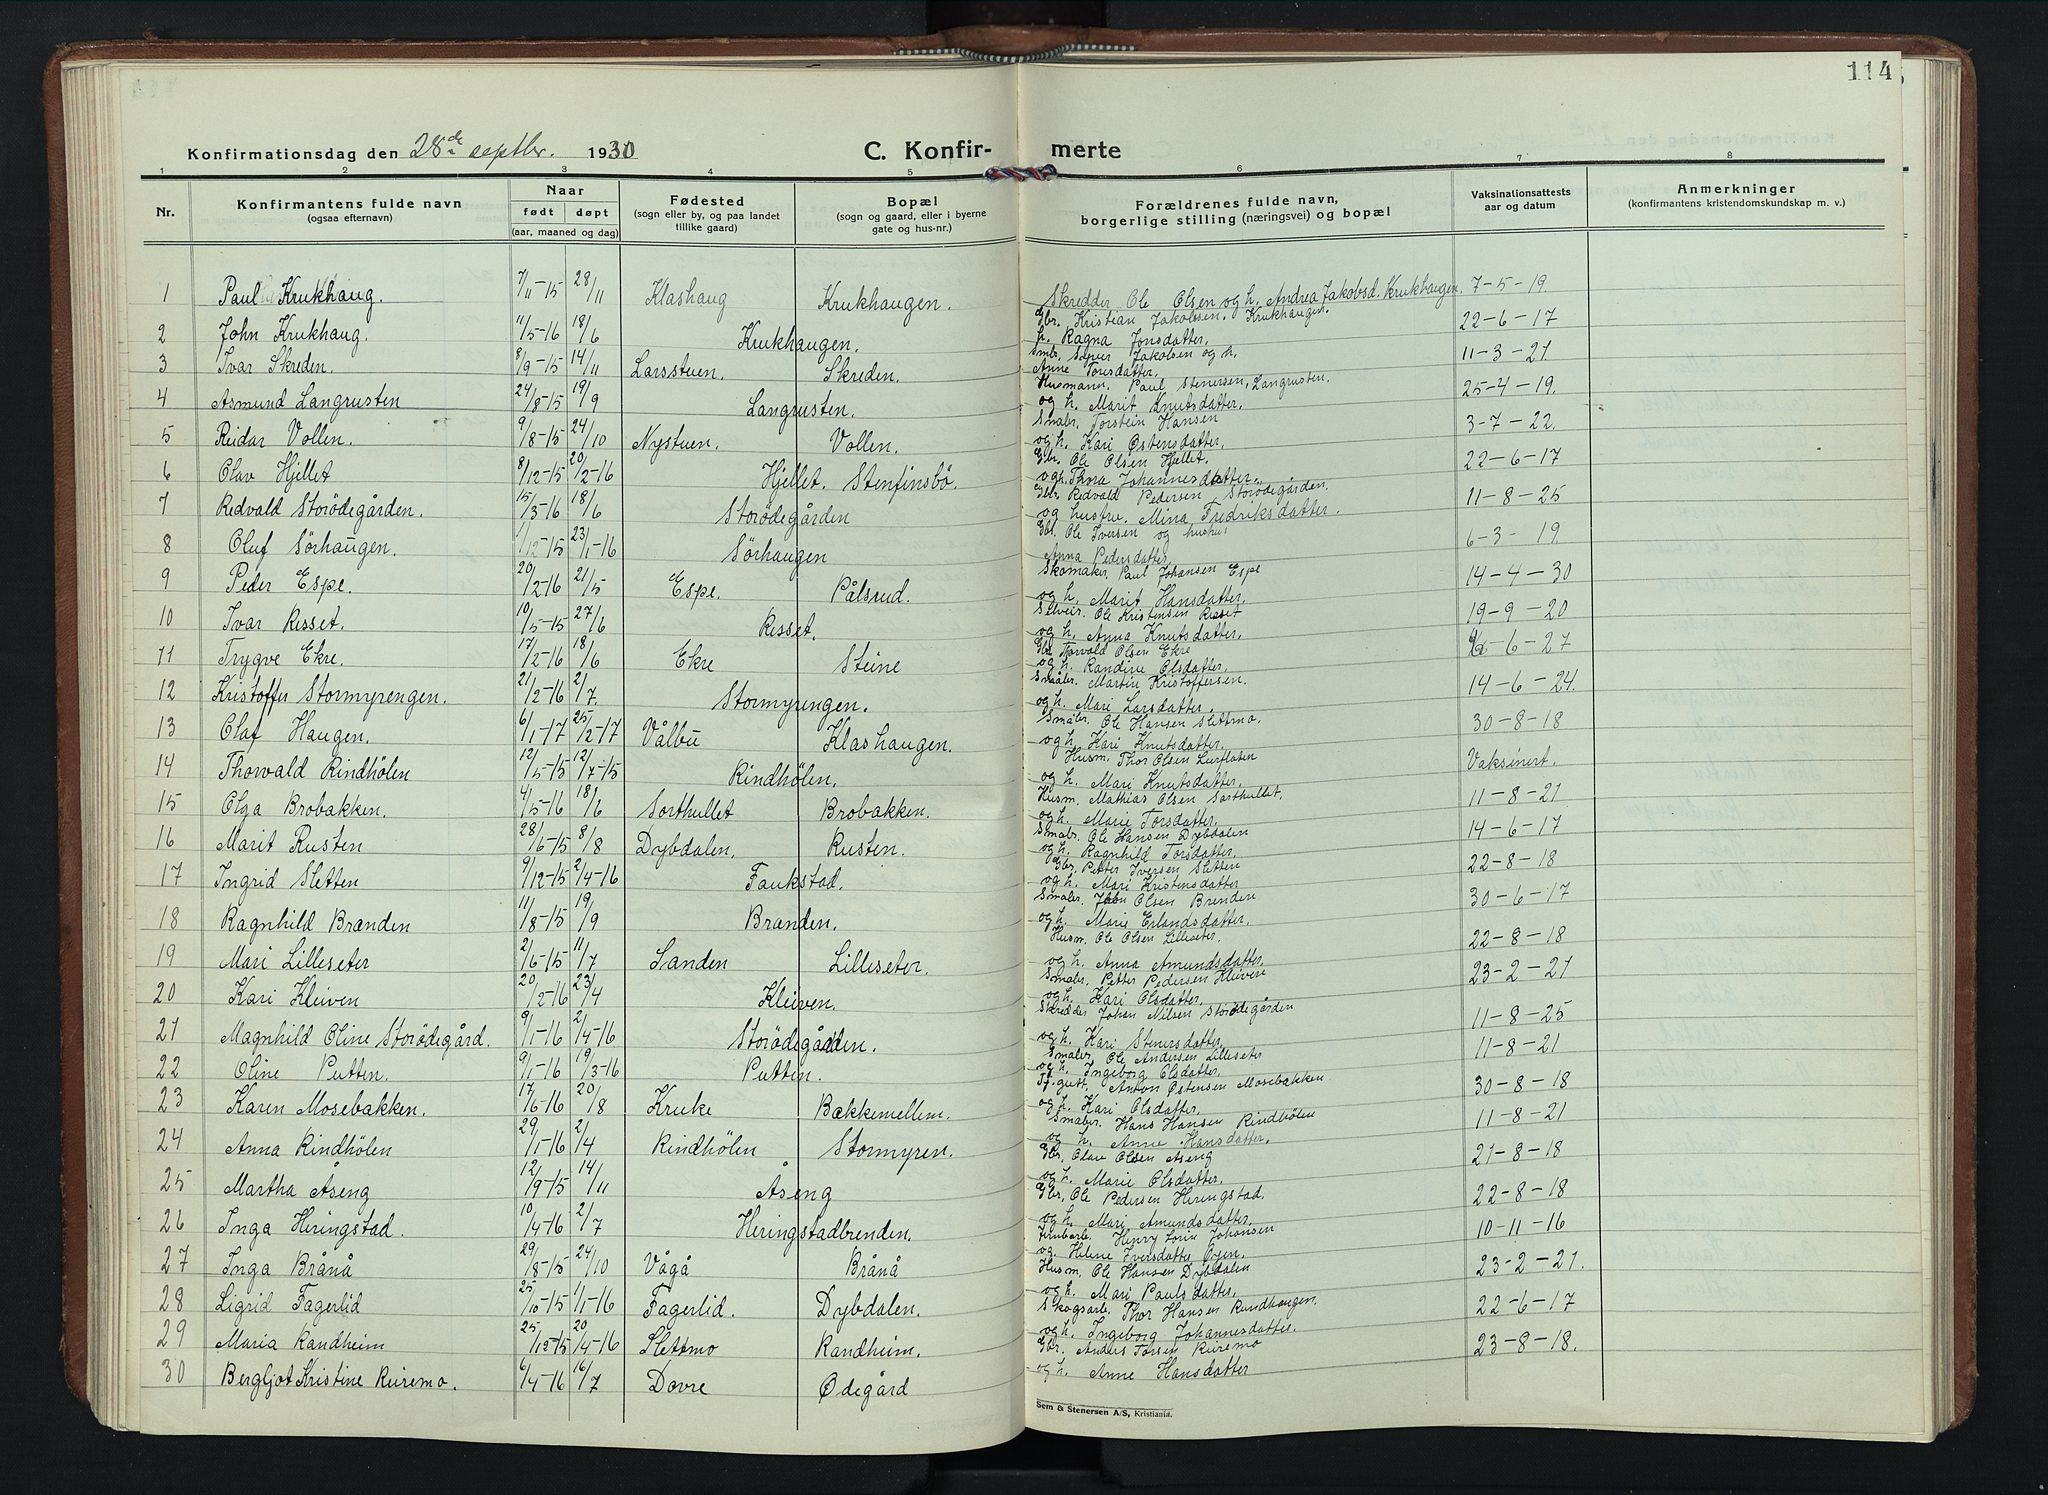 114
Konfirmationsdag den 28de septbr. 1930
C. Konfir-merte
1 2 3 4 5 6 7 8
Nr.
Konfirmantens fulde navn
(ogsaa efternavn)
Naar
født døpt
(aar, maaned og dag)
Fødested
(sogn eller by, og paa landet
tillike gaard)
Bopæl
(sogn og gaard, eller i byerne
gate og hus-nr.)
Forældrenes fulde navn,
borgerlige stilling (næringsvei) og bopæl
Vaksinationsattests
aar og datum
Anmerkninger
(konfirmantens kristendomskundskap m. v.)
1 Paul Krukhaug. 7/11-15 28/11 Klashaug Krukhaugen. Skredder Ole Olsen og h. Andrea Jakobsd. Krukhaugen. 7-5-19.
2 John Krukhaug. 11/5-16 18/6 Krukhaugen. Gbr. Kristian Jakobsen. Krukhaugen. 22-6-17
h. Ragna Jonsdatter.
3 Ivar Skreden. 8/9-15 14/11 Larsstuen. Skreden. Smbr. Syver Jakobsen og h. 11-3-21
Anne Torsdatter.
4 Asmund Langrusten 24/8-15 19/9 Langrusten. Husmann. Paul Stenersen, Langrusten. 25-4-19.
og h. Marit Knutsdatter.
5 Reidar Vollen. 9/8-15 24/10 Nystuen. Vollen. Smabr. Torstein Hansen 3-7-22.
og h. Kari Østensdatter.
6 Olav Hjellet 8/12-15 20/2-16 Hjellet. Stenfinsbö. Gbr. Ole Olsen Hjellet. 22-6-17
og h. Thora Johannesdatter.
7 Redvald Storödegården. 15/3-16 18/6 Storödegården Gbr. Redvald Pedersen Storödegården. 11-8-25
og hustru. Mina Fredriksdatter.
8 Oluf Sörhaugen. 1/12-15 23/1-16 Sörhaugen Gbr. Ole Iversen og hustru 6-3-19.
Anna Pedersdatter
9 Peder Espe. 20/2-16 21/5 Espe. Pålsrud. Skomaker. Paul Johansen Espe 14-4-30
og h. Marit Hansdatter.
10 Ivar Risset. 10/5-15 27/6 Risset. Selveir. Ole Kristensen Risset 19-9-20
og h. Anna Knutsdatter.
11 Trygve Ekre. 17/2-16 18/6 Ekre Steine Gbr. Torvald Olsen Ekre -6-27
og h. Randine Olsdatter.
12 Kristoffer Stormyrengen. 21/2-16 2/7. Stormyrengen. Småbr. Martin Kristoffersen. 14-6-24.
og h. Mari Larsdatter.
13 Olaf Haugen. 6/1-17 25/2-17 Vålbu Klashaugen. Småbr. Ole Hansen Slettmo. 30-8-18
og h. Kari Knutsdatter.
14 Thorvald Rindhölen 12/5-15 12/7-15 Rindhölen. Husm. Thor Olsen Lurfloten Vaksinert.
og h. Mari Knutsdatter.
15 Olga Brobakken. 4/5-16 18/6 Sorthullet Brobakken. Husm. Mathias Olsen Sorthullet. 11-8-21
og h. Marie Torsdatter.
16 Marit Rusten 28/6-15 8/8 Dybdalen. Rusten. Smabr. Ole Hansen Dybdalen 14-6-17
og h. Ragnhild Torsdatter.
17 Ingrid Sletten 9/12-15 2/4-16 Faukstad. Gbr. Petter Iversen Sletten 22-8-18
og h. Mari Kristensdatter
18 Ragnhild Brænden 11/8-15 19/9 Brænden. Smabr. John Olsen Brenden 30-6-17
og h. Marie Erlandsdatter.
19 Mari Lilleseter 2/6-15 11/7 Sanden Lilleseter. Husm. Ole Olsen Lilleseter. 22-8-18
og h. Anna Amundsdatter.
20 Kari Kleiven 20/2-16 23/4 Kleiven. Smabr. Petter Pedersen Kleiven 23-2-21
og h. Kari Olsdatter.
21 Magnhild Oline Storödegård. 9/1-16 2/4-16 Storödegården. Skredder Johan Nilsen Storödegården 11-8-25
og h. Kari Stenersdatter.
22 Oline Putten. 9/1-16 19/3-16 Putten. Smabr. Ole Andersen Lilleseter 11-8-21
og h. Ingeborg Olsdatter.
23 Karen Mosebakken. 17/6-16 20/8 Kruke Bækkemellem. Tj.gutt. Anton Østensen Mosebakken 30-8-18
og h. Kari Olsdatter.
24 Anna Rindhölen 29/1-16 2/4 Rindhölen Stormyren. Smabr. Hans Hansen Rindhölen 11-8-21
og h. Anne Hansdatter.
25 Martha Åseng 12/9-15 14/11 Åseng Gbr. Olav Olsen Aseng 21-8-18
og h. Marie Olsdatter.
26 Inga Heringstad. 10/4-16 2/7 Heringstadbrenden. Gbr. Ole Pedersen Heringstad. 22-8-18
og h. Mari Amundsdatter.
27 Inga Brånå 29/8-15 24/10 Vågå Brånå Jernbarb. Henry Lorin Johansen 10-11-16
og Helene Iversdatter Øyen.
28 Sigrid Fagerlid 25/10-15 1/1-16 Fagerlid. Dybdalen. Husm. Ole Hansen Dybdalen 23-2-21.
og h. Mari Paulsdatter.
29 Maria Randheim 25/12-15 20/4-16 Slettmo Randheim. Skogsarb. Thor Hansen Rundhaugen. 22-6-17
og h. Ingeborg Johannesdatter.
30 Bergljot Kristine Ruremo. 6/4-16 16/7 Dovre Ødegård Gbr. Anders Torsen Ruremo 23-8-18.
og h. Anne Hansdatter
Sem & Stenersen A/S, Kristiania.